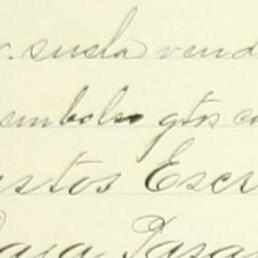 suela vend
embolso gtos
stos Escri
Caja Pasa